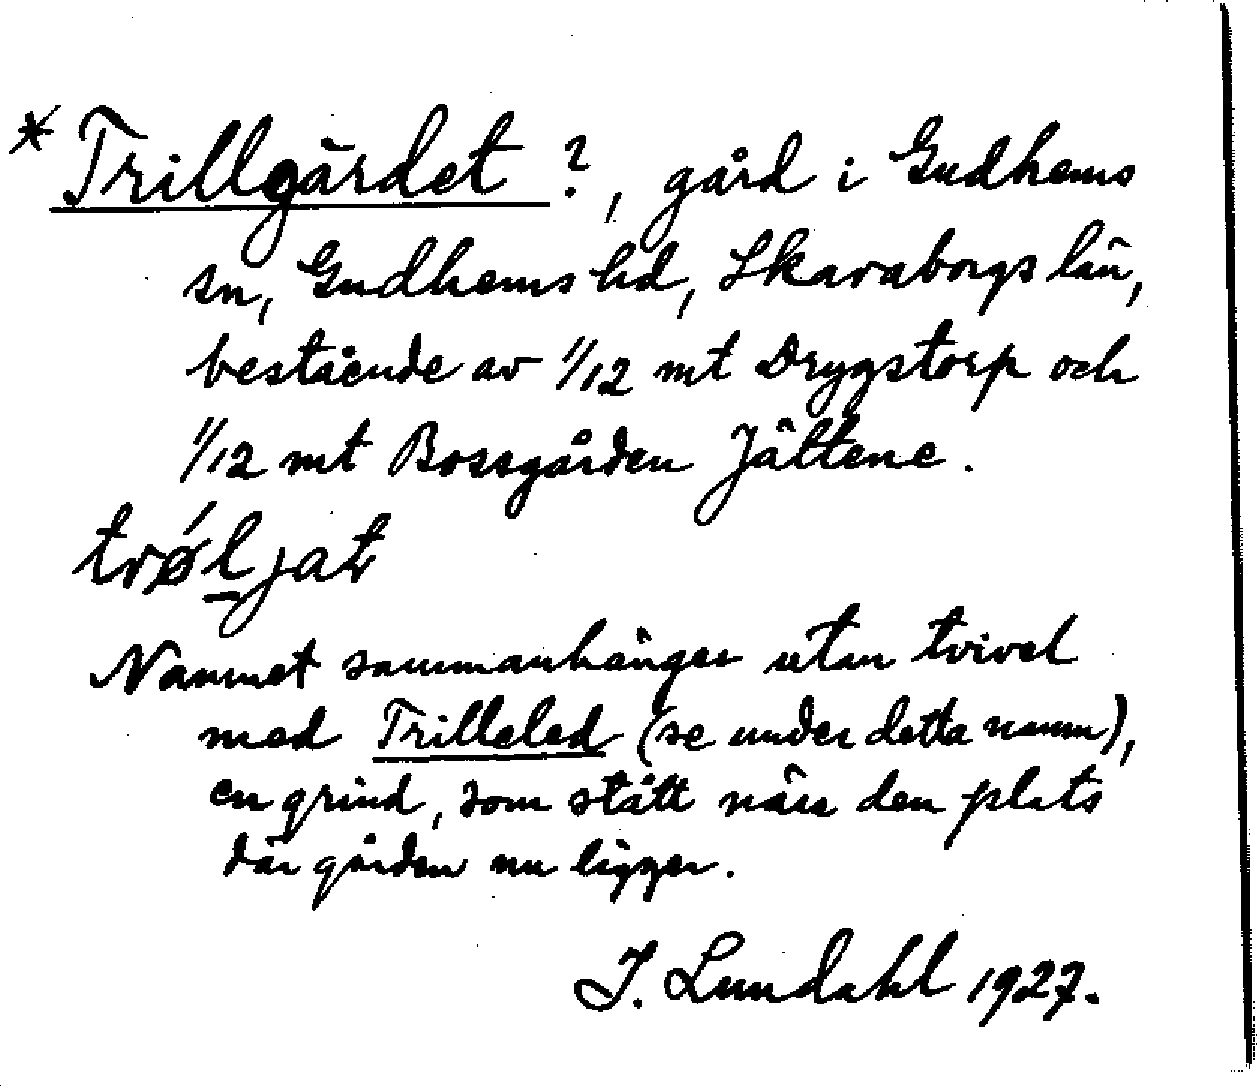 * Trillgärdet ?, gård i Gudhems
sn, Gudhems hd, Skaraborgs län,
bestående av 1/12 mt Drygstorp och
1/12 mt Bossgården Jättene.
trǿḻjat
Namnet sammanhänger utan tvivel
med Trilleled (se under detta namn),
en grind, som stått nära den plats
där gården nu ligger.
J. Lundahl 1927.